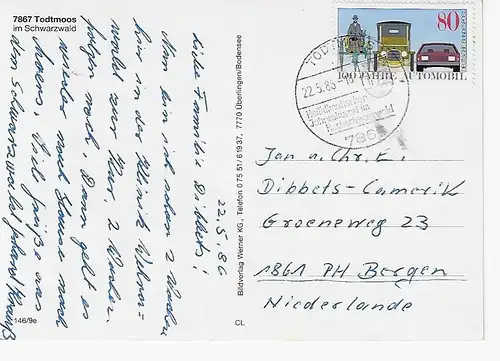 7867 Todtmoos
im Schwarzwald
22.5.86
Liebe Familie Dibbets!
Nun bin ich schon 2 Wochen
hier in der Klinik Wehra-
wald zur Kur, 2 Wochen
folgen noch, dann geht es
wieder nach Hause nach
Ahrens. Viele Grüße aus
dem Schwarzwald
146/9e
CL
Bildverlag Werner KG, Telefon 0 75 51/6 19 37, 7770 Überlingen/Bodensee
TODTMOOS
22.5.86
786
80
DEUTSCHE BUNDESPOST
100 JAHRE AUTOMOBIL
Jan u. Chr. k.
Dibbets-Camerik
Groeneweg 23
1861 PH Bergen
Niederlande